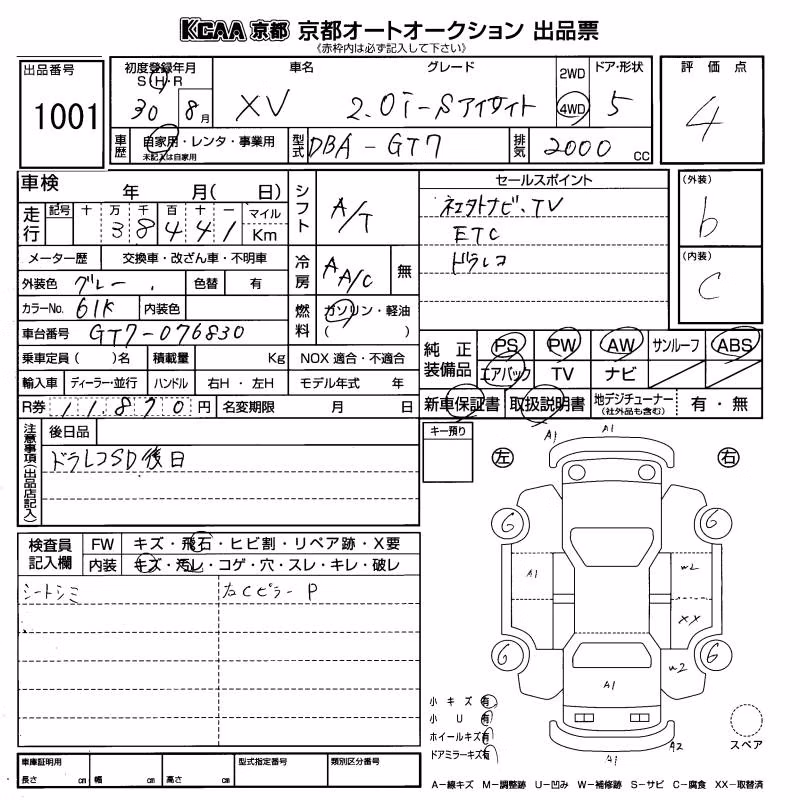 KCAA 京都 京都オートオークション 出品票
《赤枠内は必ず記入して下さい》
出品番号
1001
初度登録年月
S・H・R
30 8月
車名
XV
グレード
2.0i-Sアイサイト
2WD
4WD
ドア・形状
5
評価点
4
車歴
自家用・レンタ・事業用
未記入は自家用
型式
DBA-GT7
排気
2000 cc
車検 年 月( 日)
走行
記号 十 万 千 百 十 一
38441
マイル
Km
メーター歴 交換車・改ざん車・不明車
外装色 グレー 色替 有
カラーNo. 61K 内装色
車台番号 GT7-076830
乗車定員( )名 積載量 Kg
輸入車 ディーラー・並行 ハンドル 右H・左H
R券 11870円 名変期限 月 日
シフト
A/T
冷房
A A/C 無
燃料
ガソリン・軽油
( )
NOX 適合・不適合
モデル年式 年
セールスポイント
ネエアトナビ、TV
ETC
ドラレコ
(外装)
b
(内装)
C
純正装備品
PS PW AW サンルーフ ABS
エアバック TV ナビ
新車保証書 取扱説明書 地デジチューナー(社外品も含む) 有・無
注意事項(出品店記入)
後日品
ドラレコSD後日
キー預り
検査員記入欄
FW キズ・飛石・ヒビ割・リペア跡・X要
内装 キズ・汚レ・コゲ・穴・スレ・キレ・破レ
シートシミ
左Cピラー P
左 右
A1 A1
6 6
A1 W2
XX
6 6
W2
A1
A2
A1
小キズ 有
小U 有
ホイールキズ 有
ドアミラーキズ 有
スペア
車庫証明用
長さ cm 幅 cm 高さ cm
型式指定番号
類別区分番号
A-線キズ M-調整跡 U-凹み W-補修跡 S-サビ C-腐食 XX-取替済